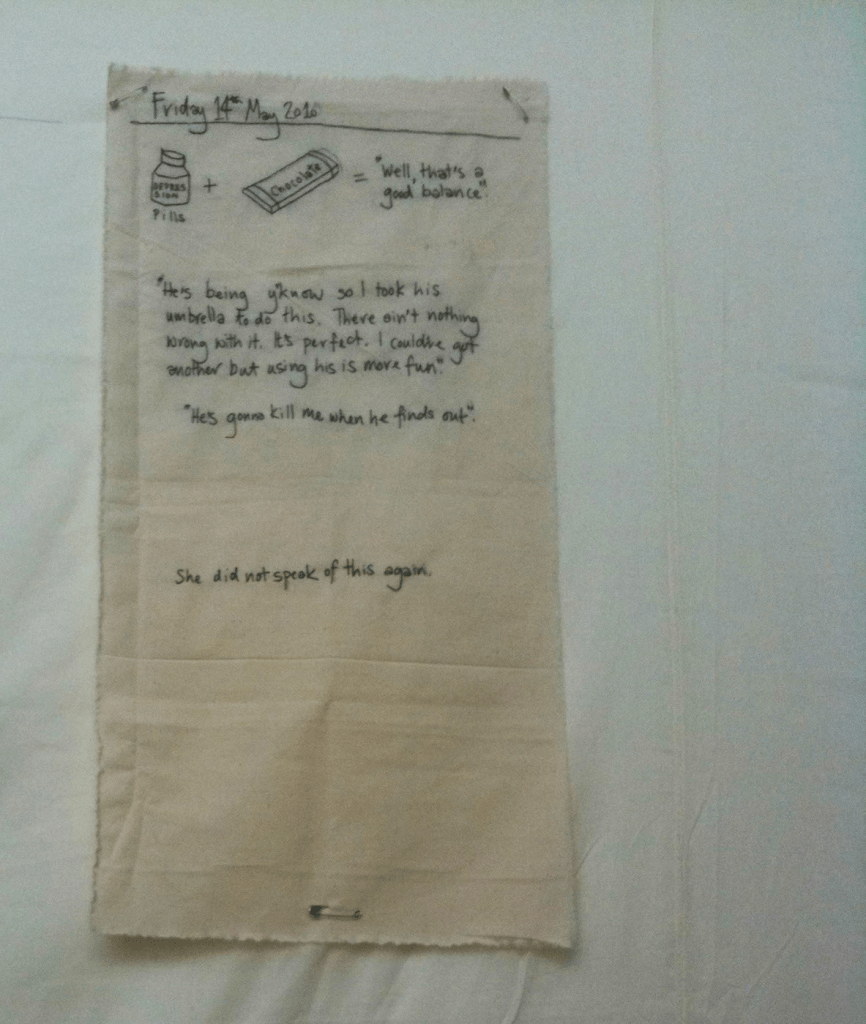 Friday 14th May 2010
DEPRES
SION
Pills
+
Chocolate
=
"Well, that's a
good balance".
"He's being y'know so I took his
umbrella to do this. There ain't nothing
wrong with it. It's perfect. I could've got
another but using his is more fun".
"He's gonna kill me when he finds out".
She did not speak of this again.